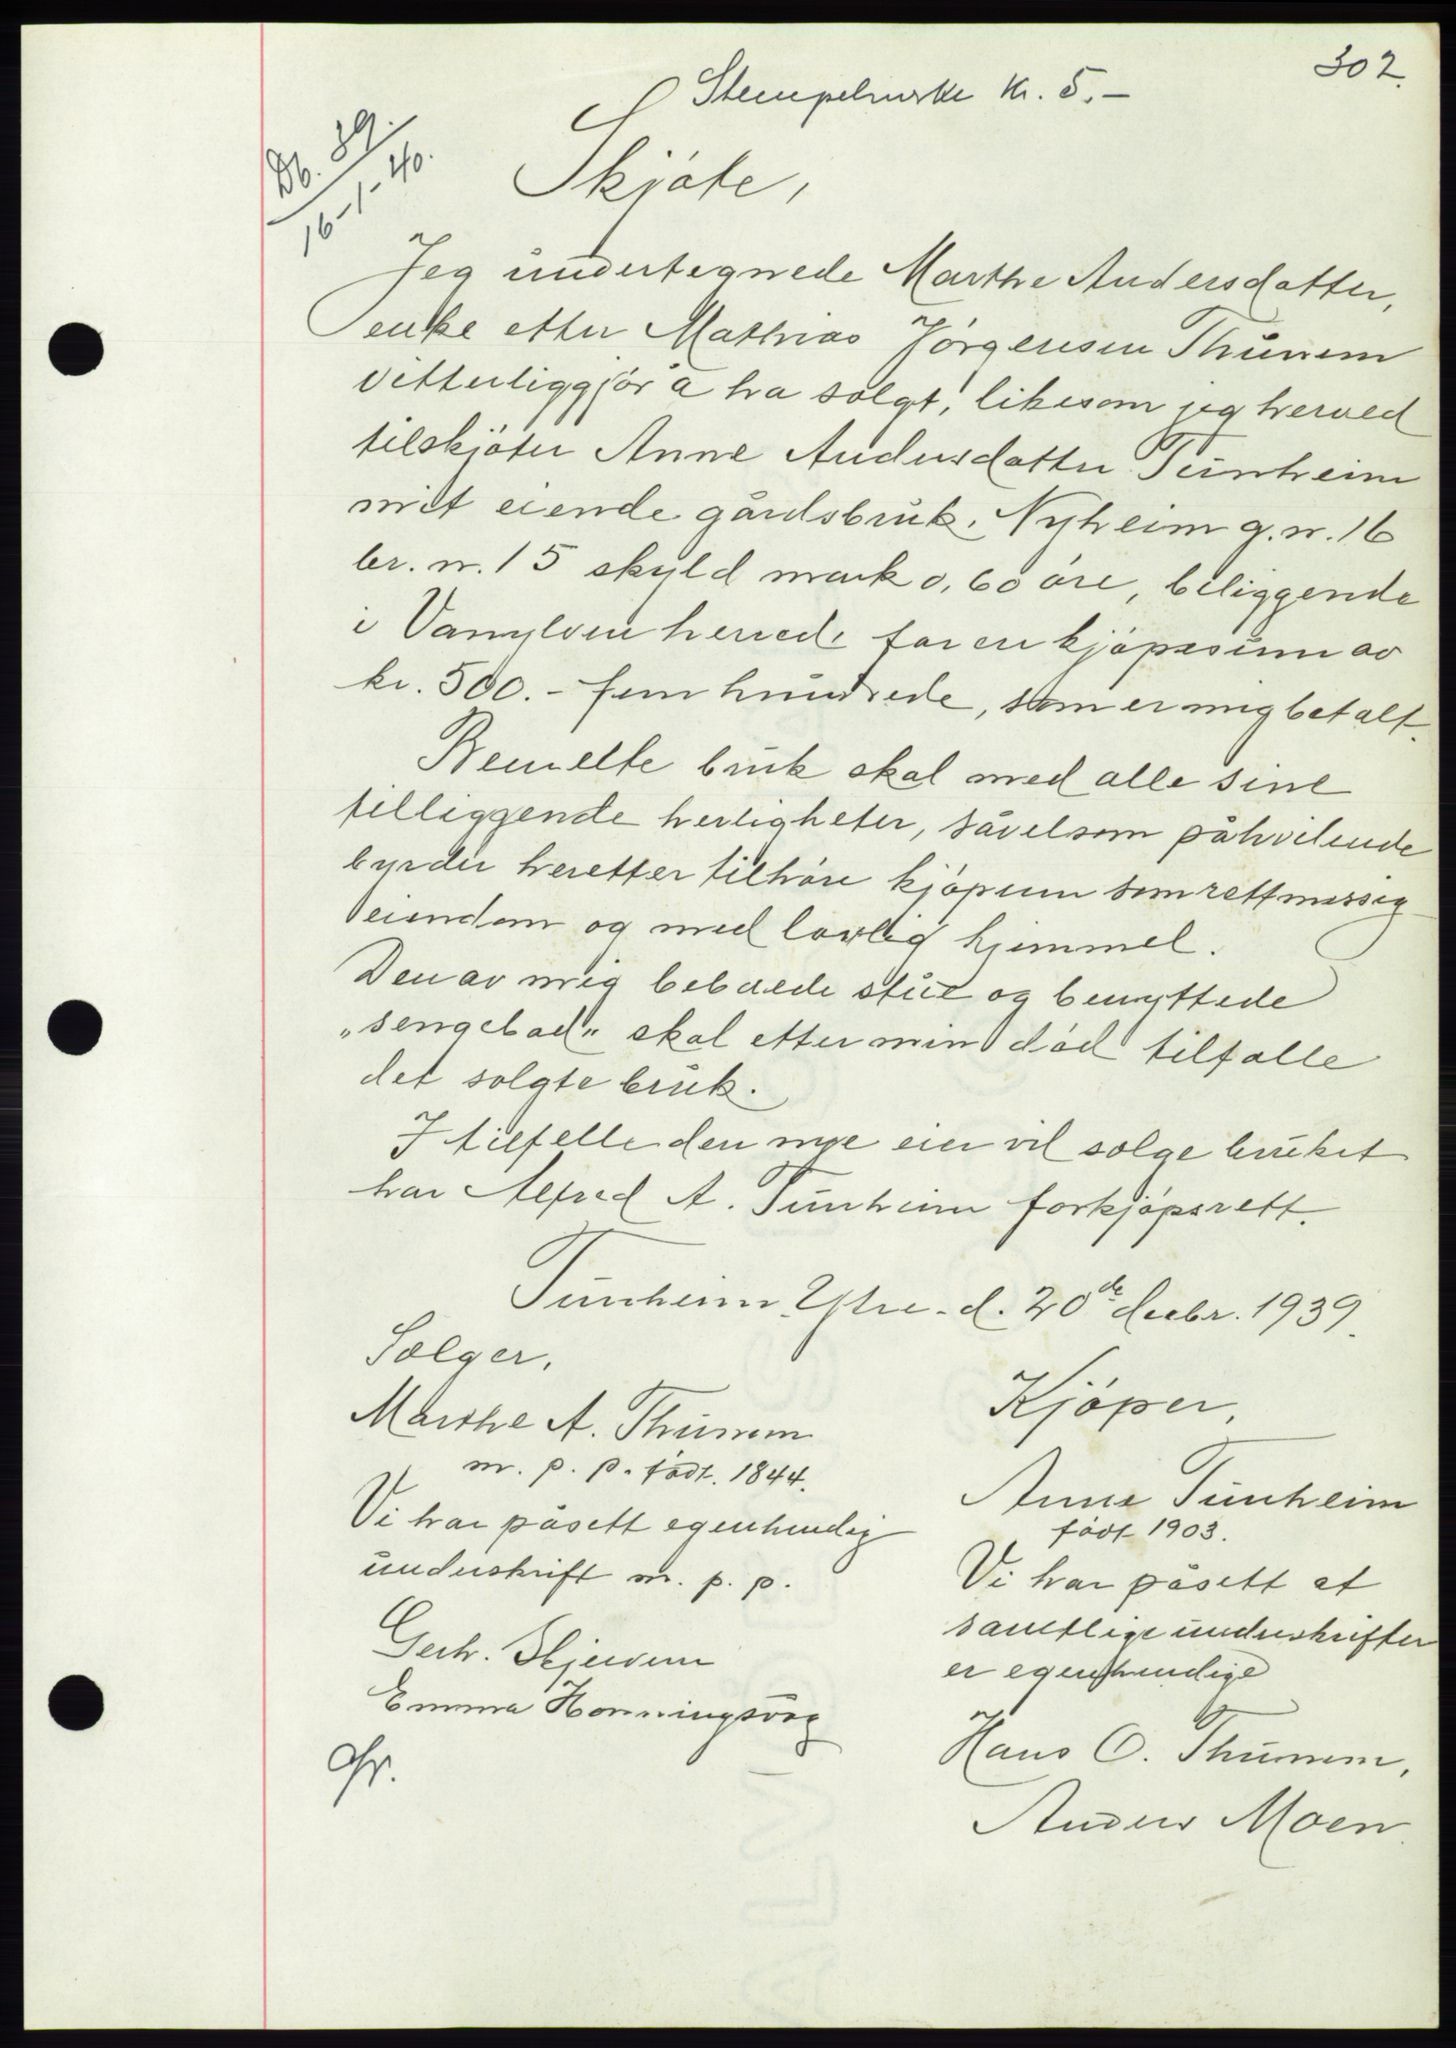 302.
Stempelmerke kr. 5.-
Db. 89.
16-1-40.
Skjøte,
Jeg undertegnede Marthe Andersdatter,
enke etter Mathias Jørgensen Thunem
vitterliggjør å ha solgt, likesom jeg herved
tilskjøter Anne Andersdatter Tunheim
mit eiende gårdsbruk, Nyheim g.nr. 16
br. nr. 15 skyld mark 0,60 øre, beliggende
i Vanylven herred, for en kjøpesum av
kr. 500.- fem hundrede, som er mig betalt.
Bemeldte bruk skal med alle sine
tilliggende herligheter, såvelsom påhvilende
byrder heretter tilhøre kjøperen som rettmessig
eiendom og med lovlig hjemmel.
Den av mig beboede stue og benyttede
„sengebod" skal etter min død tilfalle
det solgte bruk.
I tilfelle den nye eier vil selge bruket
har Alfred A. Tunheim forkjøpsrett.
Tunheim, Ytre - d. 20de decbr. 1939.
Selger,
Marthe A. Thunem
m. p. p. født. 1844.
Vi har påsett egenhendig
underskrift m. p. p.
Gerh. Skjerven
Emma Honningsvåg
Kjøper,
Anne Tunheim
født 1903.
Vi har påsett at
samtlige underskrifter
er egenhendige
Hans O. Thunem,
Anders Moen.